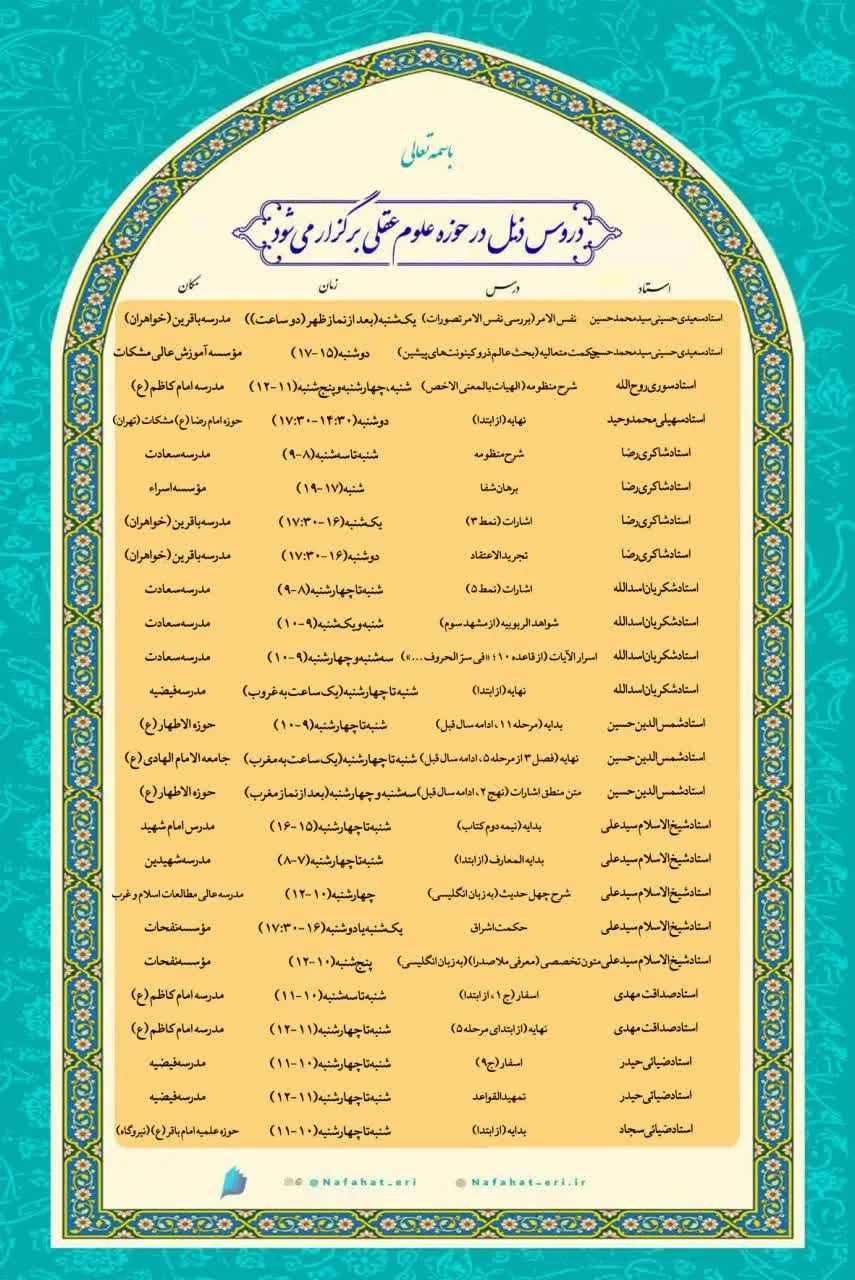 باسمه تعالی
دروس ذیل در حوزه علوم عقلی برگزار می شود
استاد درس زمان مکان
استاد سعیدی حسینی سید محمد حسین نفس الامر (بررسی نفس الامر تصورات) یک‌شنبه (بعد از نماز ظهر (دو ساعت)) مدرسه باقرین (خواهران)
استاد سعیدی حسینی سید محمد حسین حکمت متعالیه (بحث عالم ذر و کینونت‌های پیشین) دوشنبه (۱۵-۱۷) مؤسسه آموزش عالی مشکات
استاد سوری روح الله شرح منظومه (الهیات بالمعنی الاخص) شنبه، چهارشنبه و پنج‌شنبه (۱۱-۱۲) مدرسه امام کاظم (ع)
استاد سهیلی محمد وحید نهایه (از ابتدا) دوشنبه (۱۴:۳۰-۱۷:۳۰) حوزه امام رضا (ع) مشکات (تهران)
استاد شاکری رضا شرح منظومه شنبه تا سه‌شنبه (۸-۹) مدرسه سعادت
استاد شاکری رضا برهان شفا شنبه (۱۷-۱۹) مؤسسه اسراء
استاد شاکری رضا اشارات (نمط ۳) یک‌شنبه (۱۶-۱۷:۳۰) مدرسه باقرین (خواهران)
استاد شاکری رضا تجرید الاعتقاد دوشنبه (۱۶-۱۷:۳۰) مدرسه باقرین (خواهران)
استاد شکریان اسدالله اشارات (نمط ۵) شنبه تا چهارشنبه (۸-۹) مدرسه سعادت
استاد شکریان اسدالله شواهد الربوبیه (از مشهد سوم) شنبه و یک‌شنبه (۹-۱۰) مدرسه سعادت
استاد شکریان اسدالله اسرار الآیات (از قاعده ۱۰؛ «فی سرّ الحروف...») سه‌شنبه و چهارشنبه (۹-۱۰) مدرسه سعادت
استاد شکریان اسدالله نهایه (از ابتدا) شنبه تا چهارشنبه (یک ساعت به غروب) مدرسه فیضیه
استاد شمس الدین حسین بدایه (مرحله ۱۱، ادامه سال قبل) شنبه تا چهارشنبه (۹-۱۰) حوزه الاطهار (ع)
استاد شمس الدین حسین نهایه (فصل ۳ از مرحله ۵، ادامه سال قبل) شنبه تا چهارشنبه (یک ساعت به مغرب) جامعه الامام الهادی (ع)
استاد شمس الدین حسین متن منطق اشارات (نهج ۲، ادامه سال قبل) سه‌شنبه و چهارشنبه (بعد از نماز مغرب) حوزه الاطهار (ع)
استاد شیخ الاسلام سید علی بدایه (نیمه دوم کتاب) شنبه تا چهارشنبه (۱۵-۱۶) مدرس امام شهید
استاد شیخ الاسلام سید علی بدایه المعارف (از ابتدا) شنبه تا چهارشنبه (۷-۸) مدرسه شهیدین
استاد شیخ الاسلام سید علی شرح چهل حدیث (به زبان انگلیسی) چهارشنبه (۱۰-۱۲) مدرسه عالی مطالعات اسلام و غرب
استاد شیخ الاسلام سید علی حکمت اشراق یک‌شنبه یا دوشنبه (۱۶-۱۷:۳۰) مؤسسه نفحات
استاد شیخ الاسلام سید علی متون تخصصی (معرفی ملاصدرا) (به زبان انگلیسی) پنج‌شنبه (۱۰-۱۲) مؤسسه نفحات
استاد صداقت مهدی اسفار (ج ۱، از ابتدا) شنبه تا سه‌شنبه (۱۰-۱۱) مدرسه امام کاظم (ع)
استاد صداقت مهدی نهایه (از ابتدای مرحله ۵) شنبه تا چهارشنبه (۱۱-۱۲) مدرسه امام کاظم (ع)
استاد ضیائی حیدر اسفار (ج ۹) شنبه تا چهارشنبه (۱۰-۱۱) مدرسه فیضیه
استاد ضیائی حیدر تمهید القواعد شنبه تا چهارشنبه (۱۱-۱۲) مدرسه فیضیه
استاد ضیائی سجاد بدایه (از ابتدا) شنبه تا چهارشنبه (۱۰-۱۱) حوزه علمیه امام باقر (ع) (نیروگاه)
@Nafahat_eri Nafahat-eri.ir